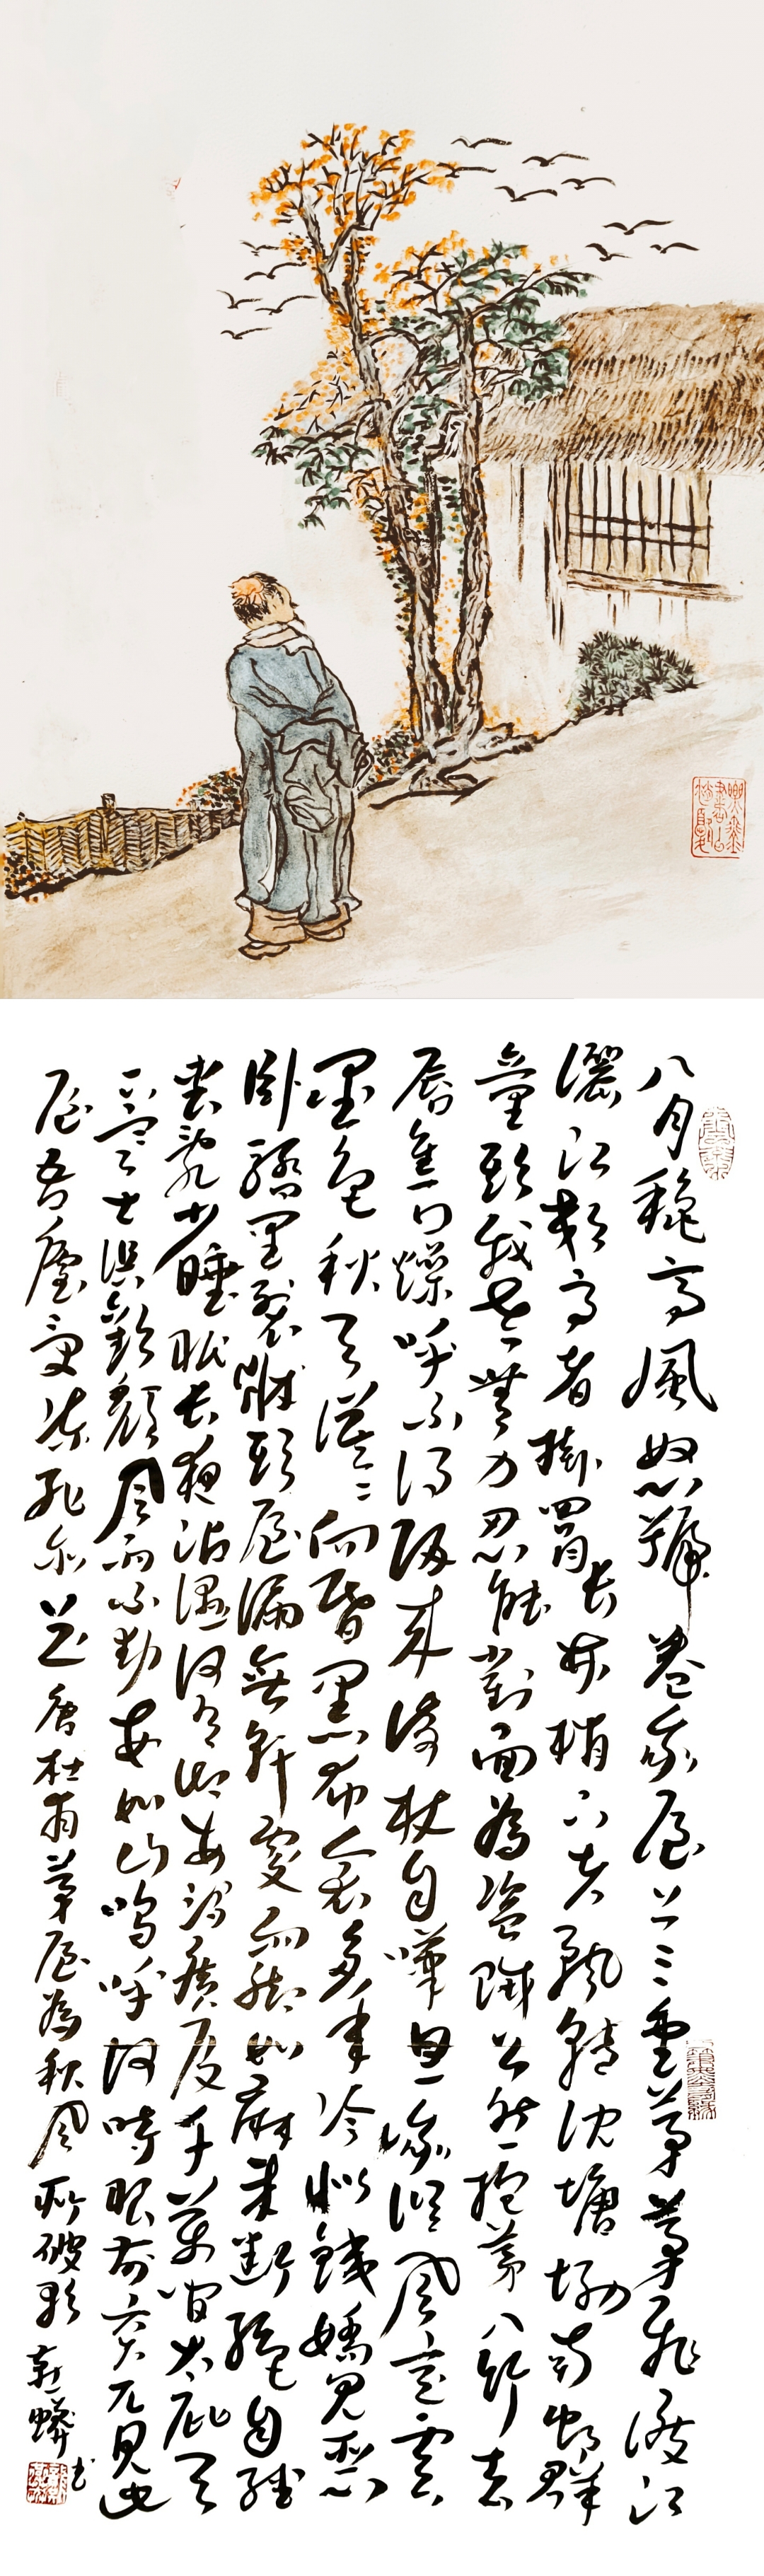 八月穐高風怒號卷我屋上三重茅茅飛渡江
灑江郊高者掛罥長林梢下者飄轉沈塘坳南村群
童欺我老無力忍能對面為盜賊公然抱茅入竹去
唇焦口燥呼不得歸來倚杖自嘆息俄頃風定雲
墨色秋天漠漠向昏黑布衾多年冷似鐵嬌兒惡
卧踏里裂床頭屋漏無乾處雨腳如麻未斷絕自經
喪亂少睡眠長夜沾濕何由徹安得廣廈千萬間大庇天
下寒士俱歡顏風雨不動安如山嗚呼何時眼前突兀見此
屋吾廬受凍死亦足 唐杜甫茅屋為秋風所破歌 書